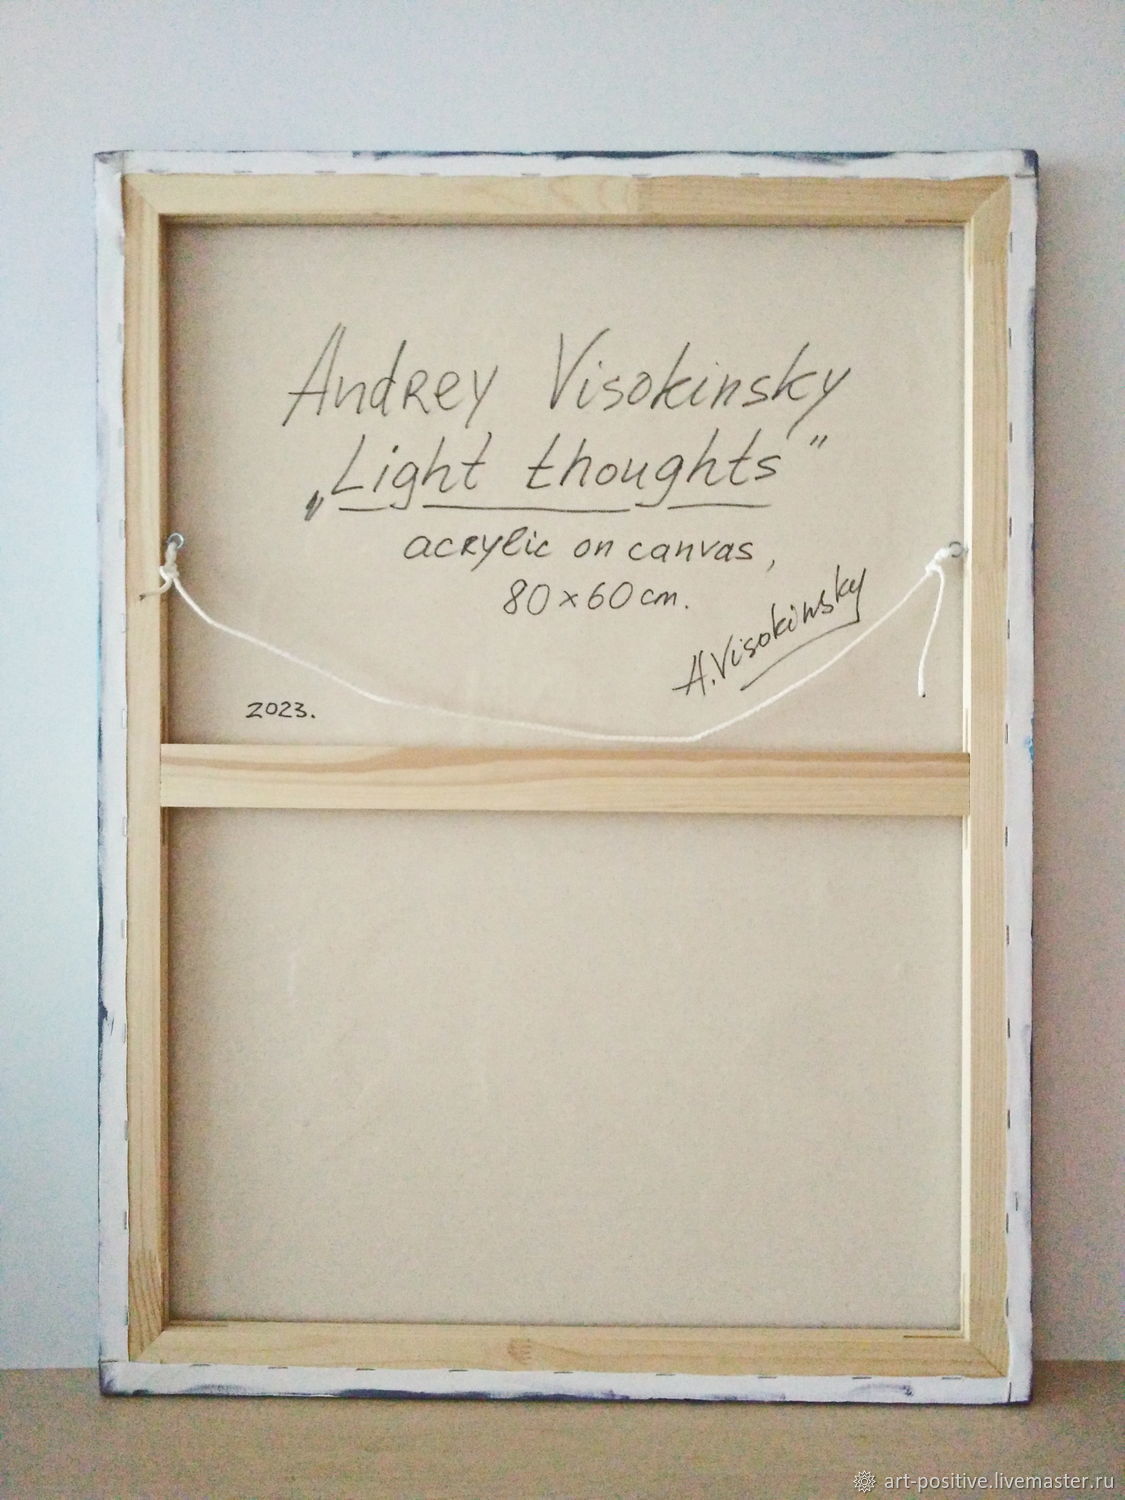 Andrey Visokinsky
„Light thoughts"
acrylic on canvas,
80×60 cm.
A.Visokinsky
2023.
art-positive.livemaster.ru